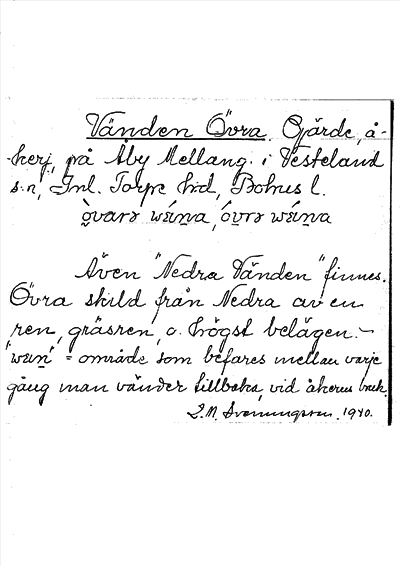 Vänden Övra. Gjärde, å-
kerj. på Åby Mellang. i Vesteland
s.n, Inl. Torpe hd, Bohus l.
Även "Nedra Vänden" finnes.
Övra skild från Nedra av en
ren, gräsren, o. högst belägen. -
= område som befares mellan varje
gång man vänder tillbaka, vid åkerns bruk.
1940.